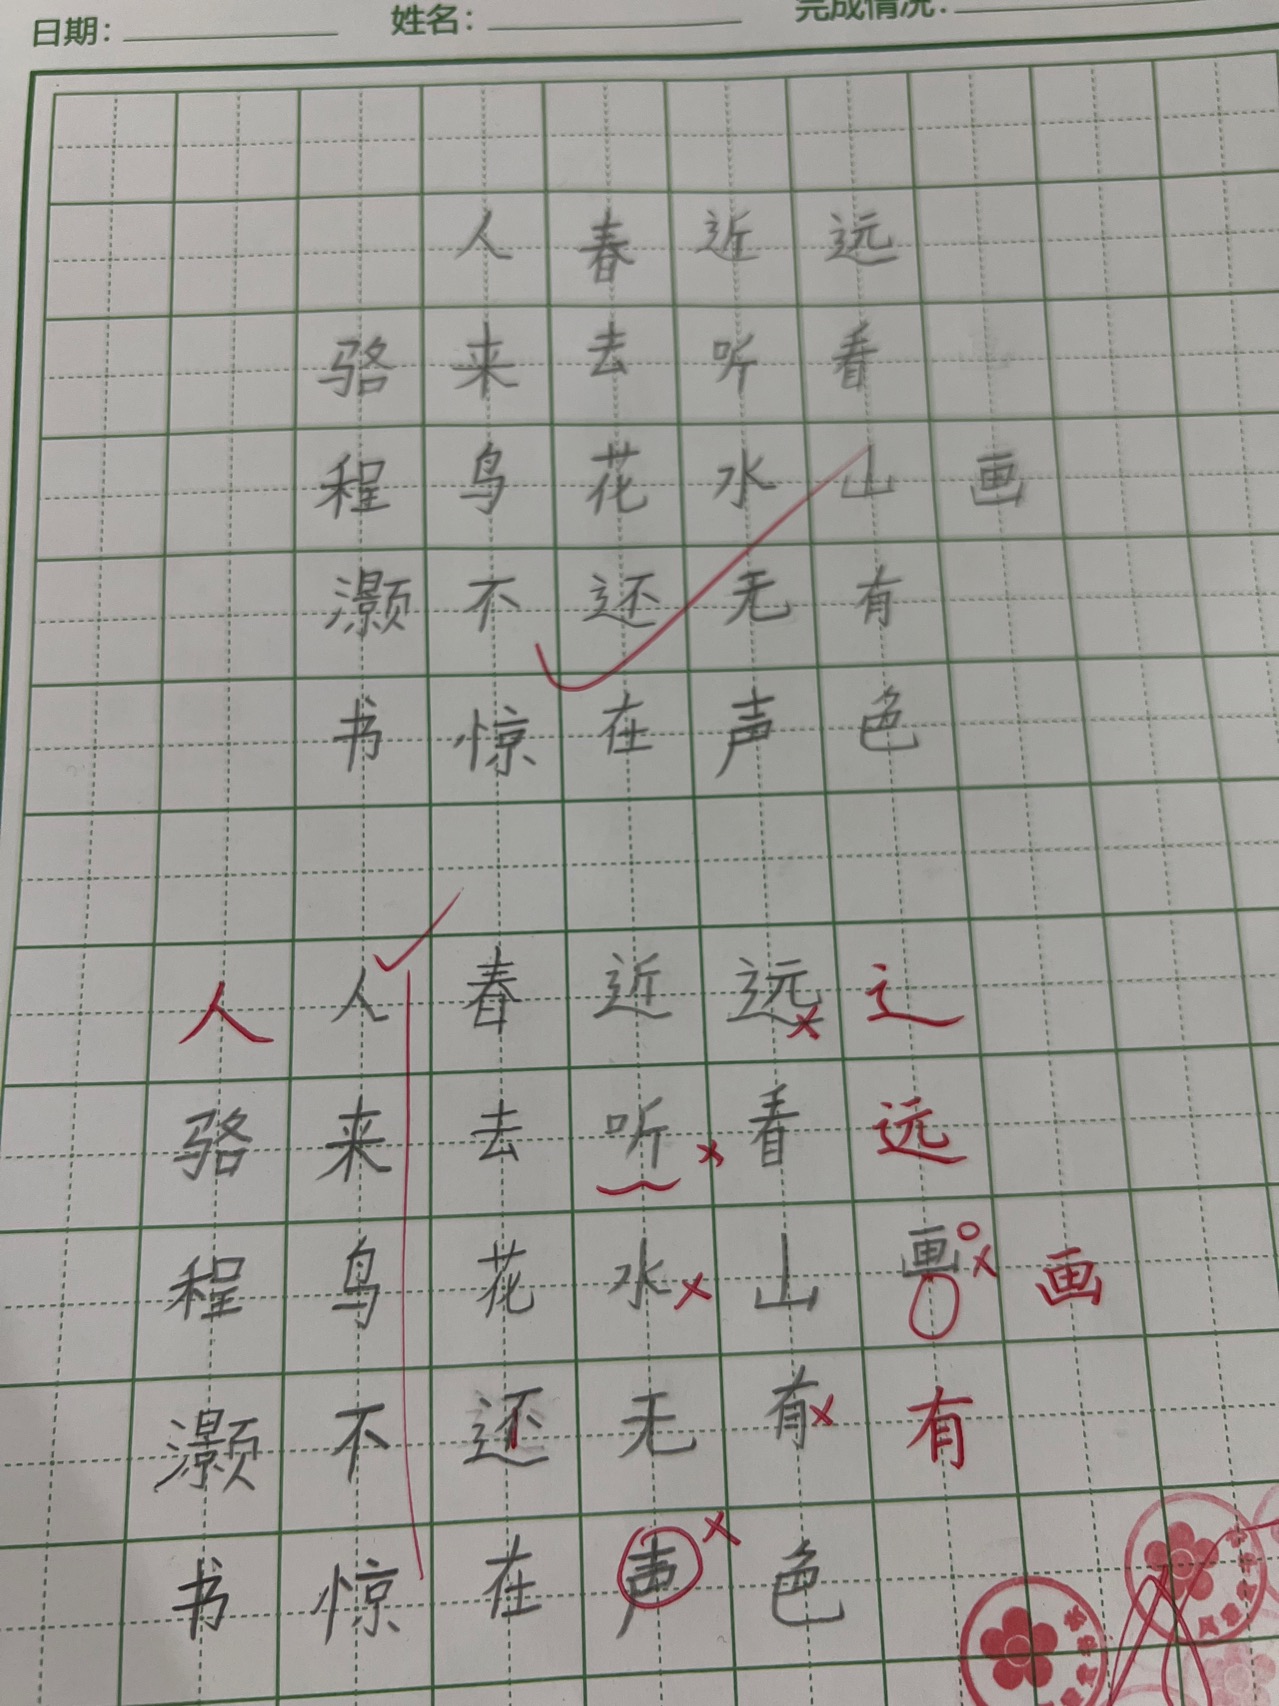 日期: 姓名: 完成情况:
画
远看山有色
近听水无声
春去花还在
人来鸟不惊
骆程灏书
画
辶远画有
远看山有色
近听水无声
春去花还在
人来鸟不惊
人骆程灏书